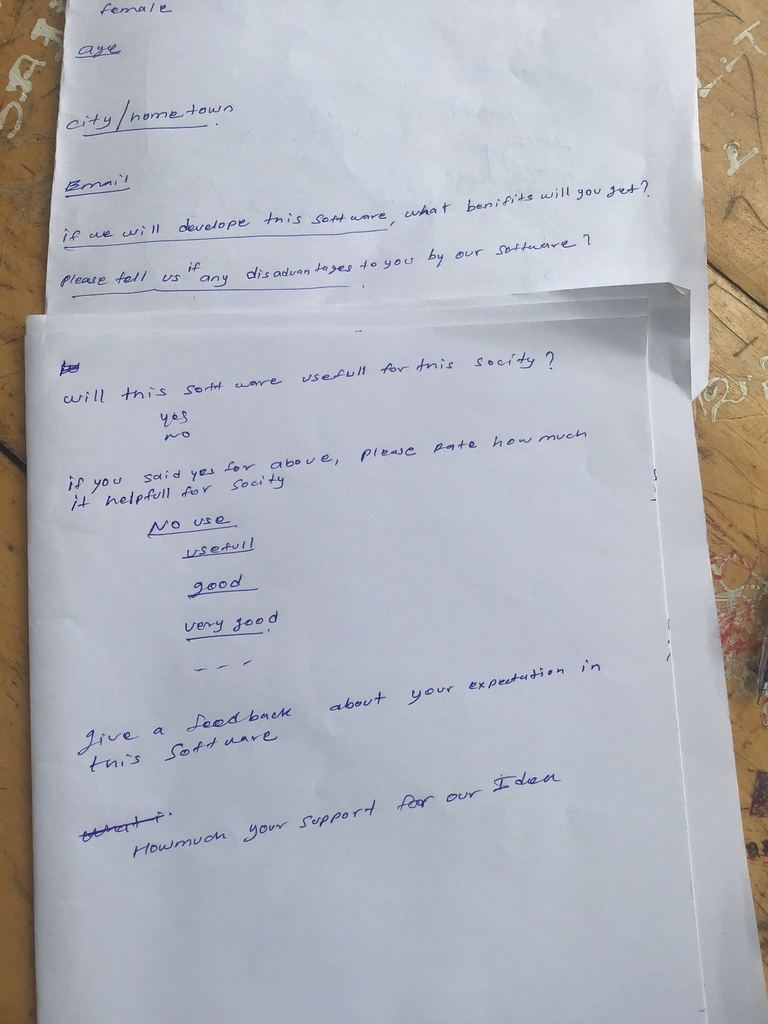 female
age
city/home town
Email
if we will develope this software, what benifits will you get?
please tell us if any disadvantages to you by our software?
will this software usefull for this socity?
yes
no
if you said yes for above, please rate how much
it helpfull for socity
No use
usefull
good
very good
- - -
give a feedback about your expectation in
this software
what i.
Howmuch your support for our Idea